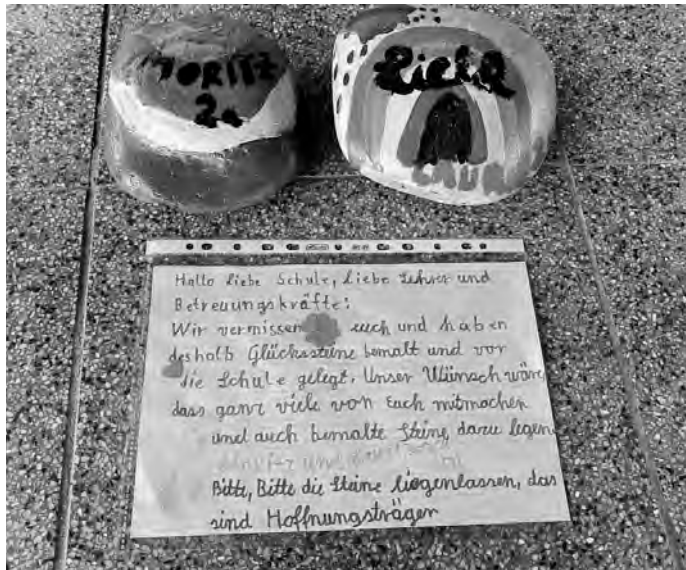 MORITZ
2a
Liebe
LAURA
Hallo liebe Schule, liebe Lehrer und
Betreuungskräfte!
Wir vermissen euch und haben
deshalb Glückssteine bemalt und vor
die Schule gelegt. Unser Wünsch wäre,
dass ganz viele von Euch mitmachen
und auch bemalte Steine dazu legen.
und
Bitte, Bitte die Steine liegenlassen, das
sind Hoffnungsträgen